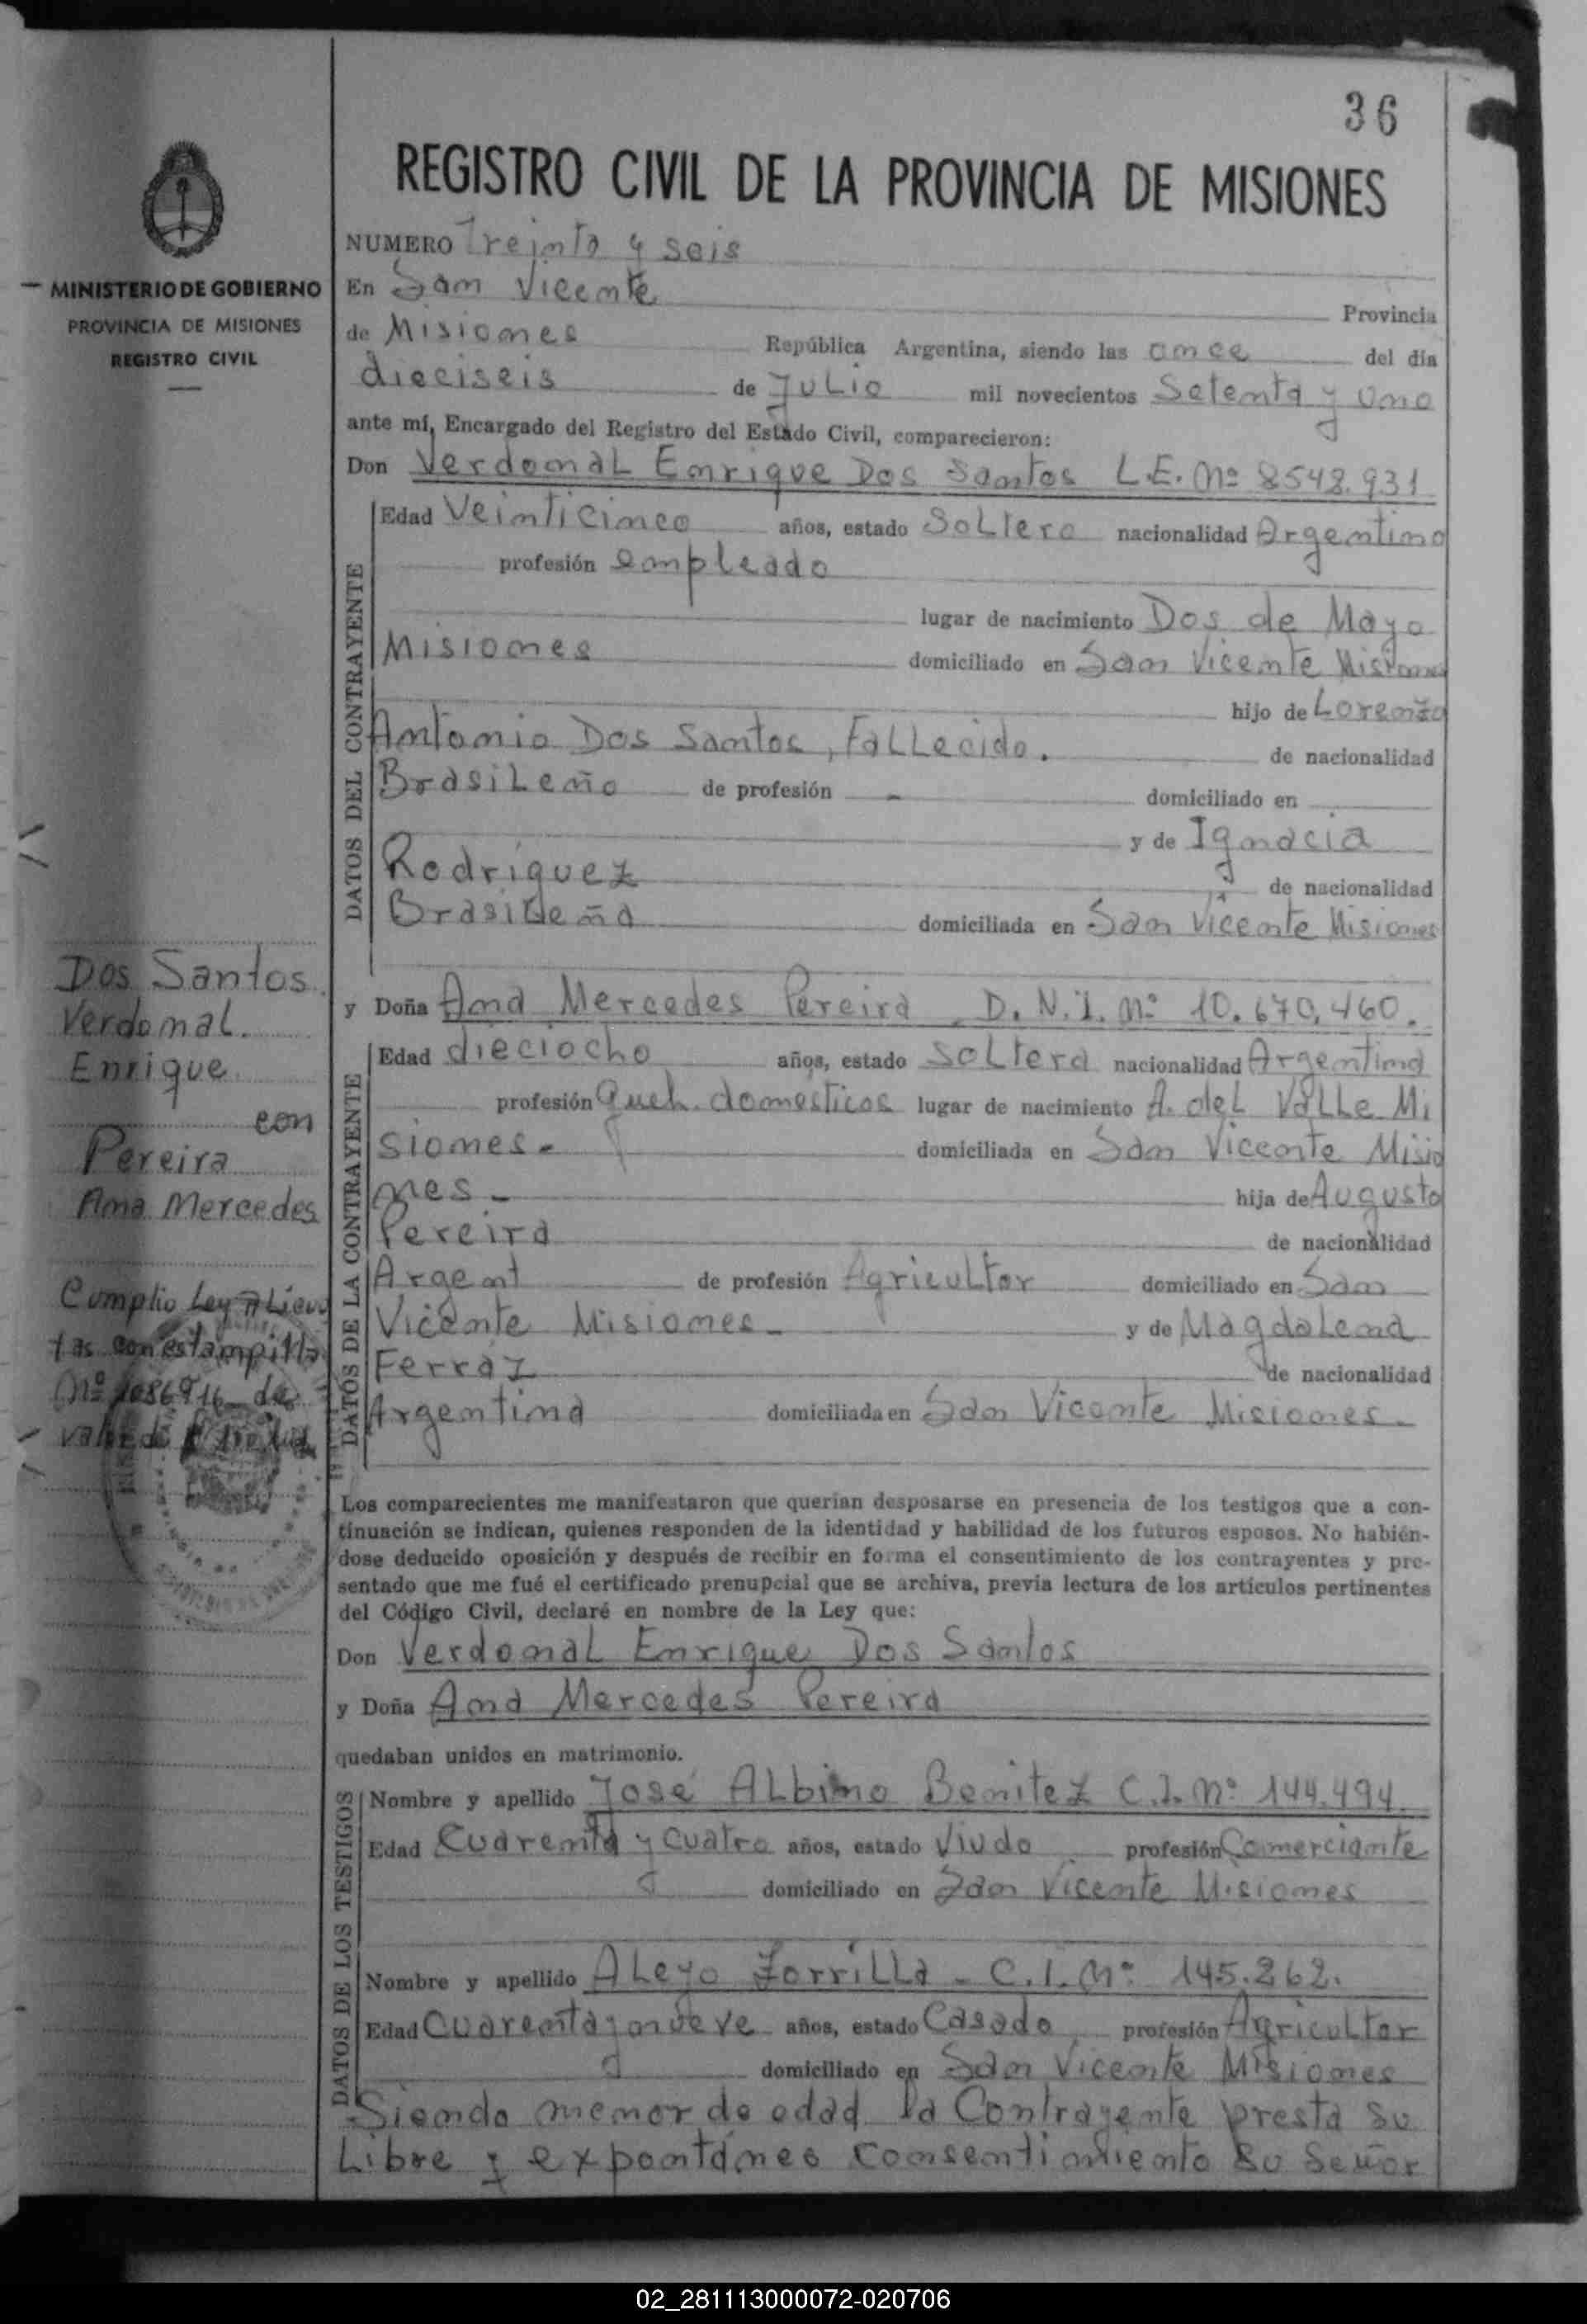 36
REGISTRO CIVIL DE LA PROVINCIA DE MISIONES
MINISTERIO DE GOBIERNO
PROVINCIA DE MISIONES
REGISTRO CIVIL
NUMERO Treinta y seis
En San Vicente Provincia
de Misiones República Argentina, siendo las once del día
dieciseis de Julio mil novecientos Setenta y Uno
ante mí, Encargado del Registro del Estado Civil, comparecieron:
Don Verdonal Enrique Dos Santos L.E. Nº 8548.931
DATOS DEL CONTRAYENTE
Edad Veinticinco años, estado Soltero nacionalidad Argentino
profesión empleado
lugar de nacimiento Dos de Mayo
Misiones domiciliado en San Vicente Misiones
hijo de Lorenzo
Antonio Dos Santos, Fallecido. de nacionalidad
Brasileño de profesión - domiciliado en
y de Ignacia
Rodríguez de nacionalidad
Brasileña domiciliada en San Vicente Misiones
Dos Santos
Verdonal
Enrique
con
Pereira
Ana Mercedes
Cumplio Ley
tas con estampilla
Nº de
y Doña Ana Mercedes Pereira D.N.I. Nº 10.670.460.
DATOS DE LA CONTRAYENTE
Edad dieciocho años, estado Soltera nacionalidad Argentina
profesión Queh. domésticos lugar de nacimiento A. del Valle Mi
siones- domiciliada en San Vicente Misio
nes- hija de Augusto
Pereira de nacionalidad
Argent de profesión Agricultor domiciliado en San
Vicente Misiones- y de Magdalena
Ferráz de nacionalidad
Argentina domiciliada en San Vicente Misiones-
Los comparecientes me manifestaron que querían desposarse en presencia de los testigos que a con-
tinuación se indican, quienes responden de la identidad y habilidad de los futuros esposos. No habién-
dose deducido oposición y después de recibir en forma el consentimiento de los contrayentes y pre-
sentado que me fué el certificado prenupcial que se archiva, previa lectura de los artículos pertinentes
del Código Civil, declaré en nombre de la Ley que:
Don Verdonal Enrique Dos Santos
y Doña Ana Mercedes Pereira
quedaban unidos en matrimonio.
DATOS DE LOS TESTIGOS
Nombre y apellido José Albino Benitez C.I. Nº 144.494
Edad Cuarenta y Cuatro años, estado Viudo profesión Comerciante
domiciliado en San Vicente Misiones
Nombre y apellido Aleyo Zorrilla - C.I. Nº 145.262.
Edad Cuarenta y nueve años, estado Casado profesión Agricultor
domiciliado en San Vicente Misiones
Siendo menor de edad la Contrayente presta su
Libre y expontáneo consentimiento su Señor
02_281113000072-020706